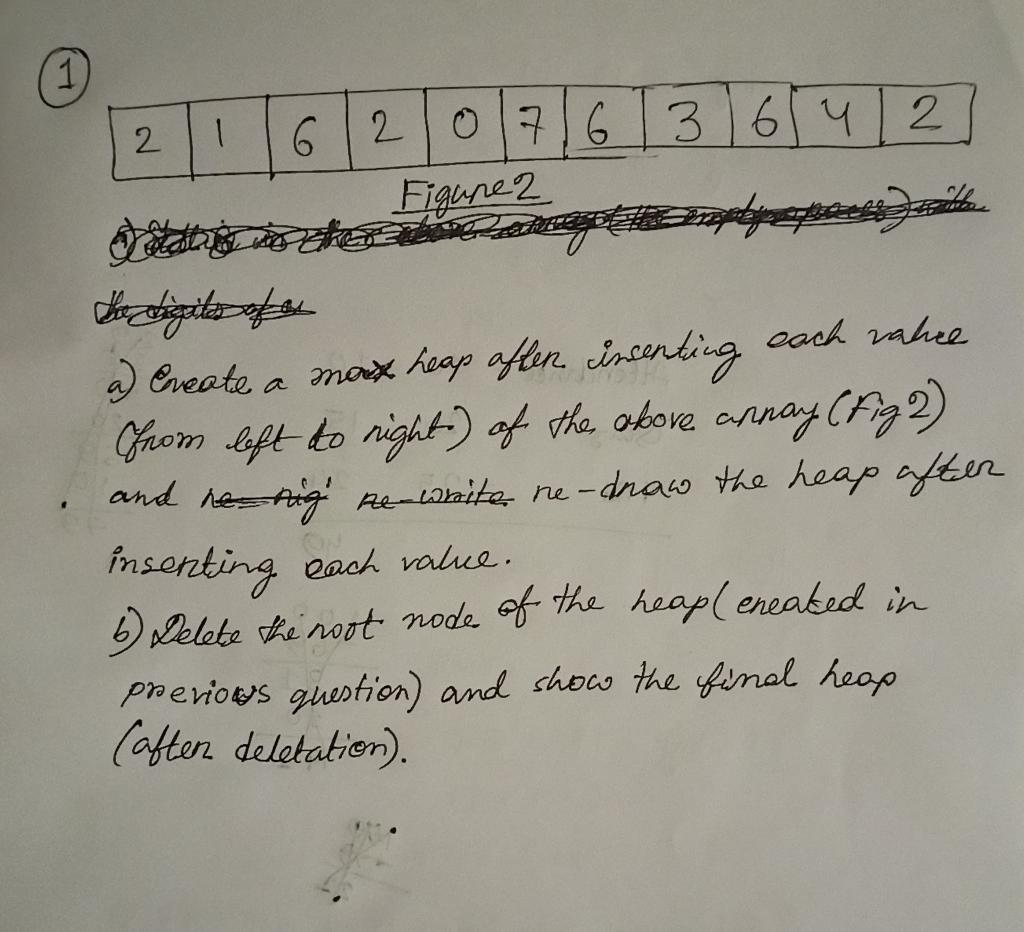 1
2 1 6 2 0 7 6 3 6 4 2
Figure 2
a) Create a max heap after inserting each value
(from left to right) of the above array (Fig 2)
and re-write re-draw the heap after
inserting each value.
b) Delete the root node of the heap (created in
previous question) and show the final heap
(after deletation).